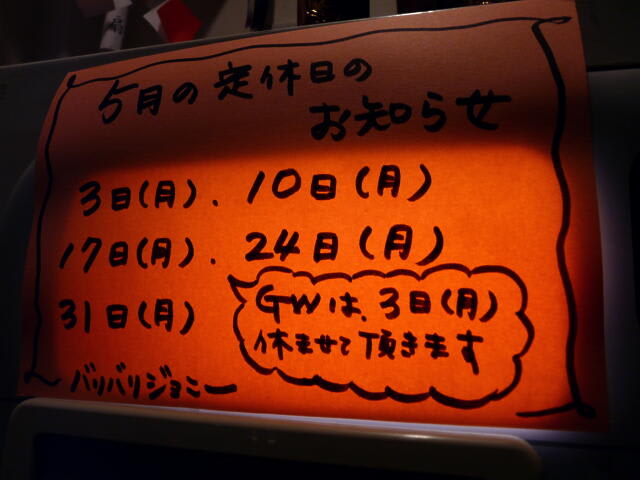 5月の定休日の
お知らせ
3日(月)．10日(月)
17日(月)．24日(月)
31日(月)
GWは、3日(月)
休ませて頂きます
バリバリジョニー